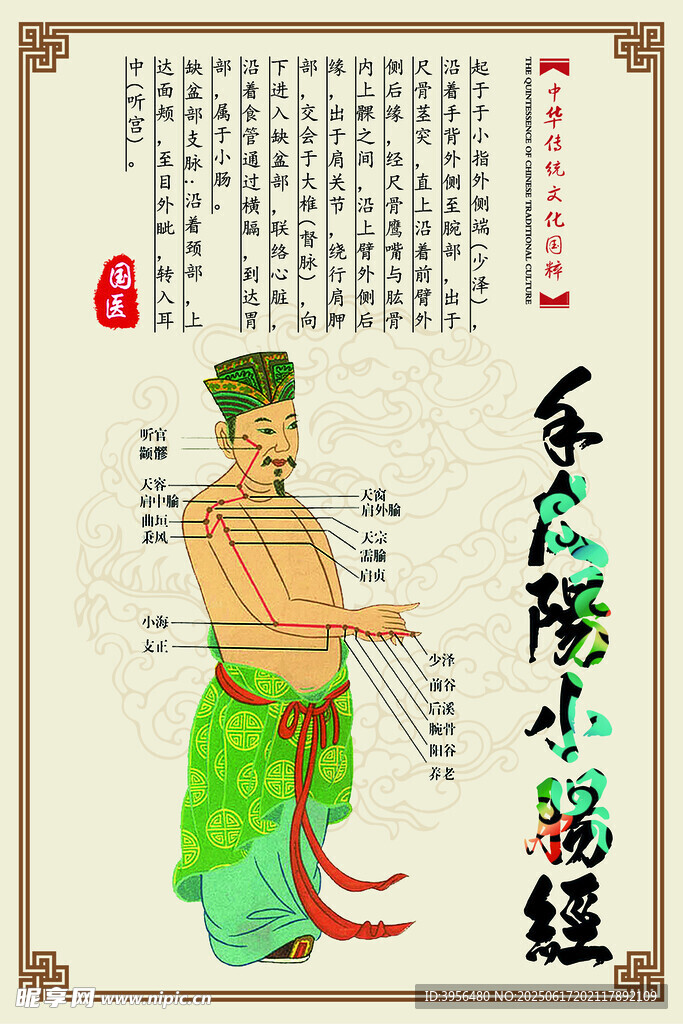 中华传统文化国粹
THE QUINTESSENCE OF CHINESE TRADITIONAL CULTURE
起于于小指外侧端(少泽),
沿着手背外侧至腕部,出于
尺骨茎突,直上沿着前臂外
侧后缘,经尺骨鹰嘴与肱骨
内上髁之间,沿上臂外侧后
缘,出于肩关节,绕行肩胛
部,交会于大椎(督脉),向
下进入缺盆部,联络心脏,
沿着食管通过横膈,到达胃
部,属于小肠。
缺盆部支脉:沿着颈部,上
达面颊,至目外眦,转入耳
中(听宫)。
国医
手太陽小腸經
听宫
颧髎
天容
肩中腧
曲垣
秉风
天窗
肩外腧
天宗
需腧
肩贞
小海
支正
少泽
前谷
后溪
腕骨
阳谷
养老
昵享网 www.nipic.cn
ID:3956480 NO:20250617202117892109